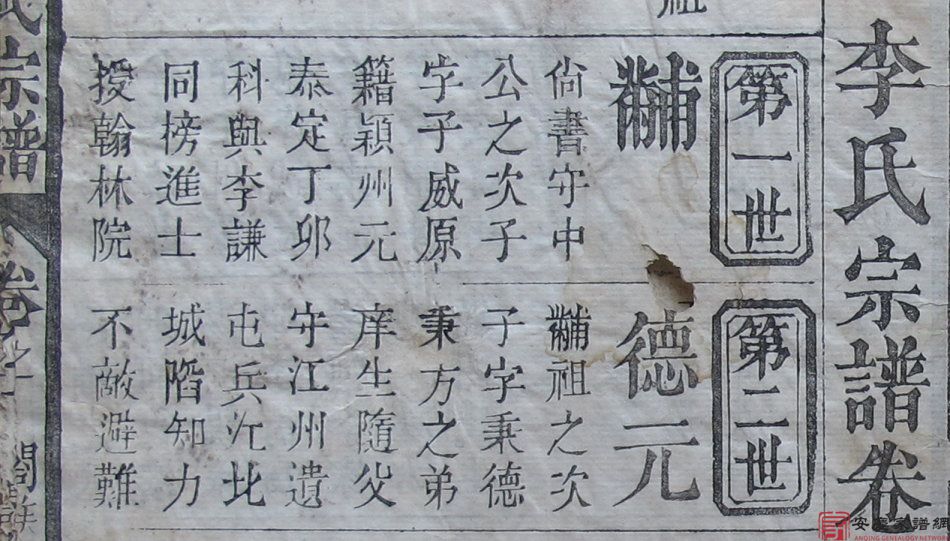 李氏宗譜卷
第一世
黼
尙書守中
公之次子
字子威原
籍穎州元
泰定丁卯
科與李謙
同榜進士
授翰林院
第二世
德元
黼祖之次
子字秉德
秉方之弟
庠生隨父
守江州遺
屯兵江北
城陷知力
不敵避難
祖
氏宗譜
卷之
安慶家譜網
ANQING GENEALOGY NETWORK